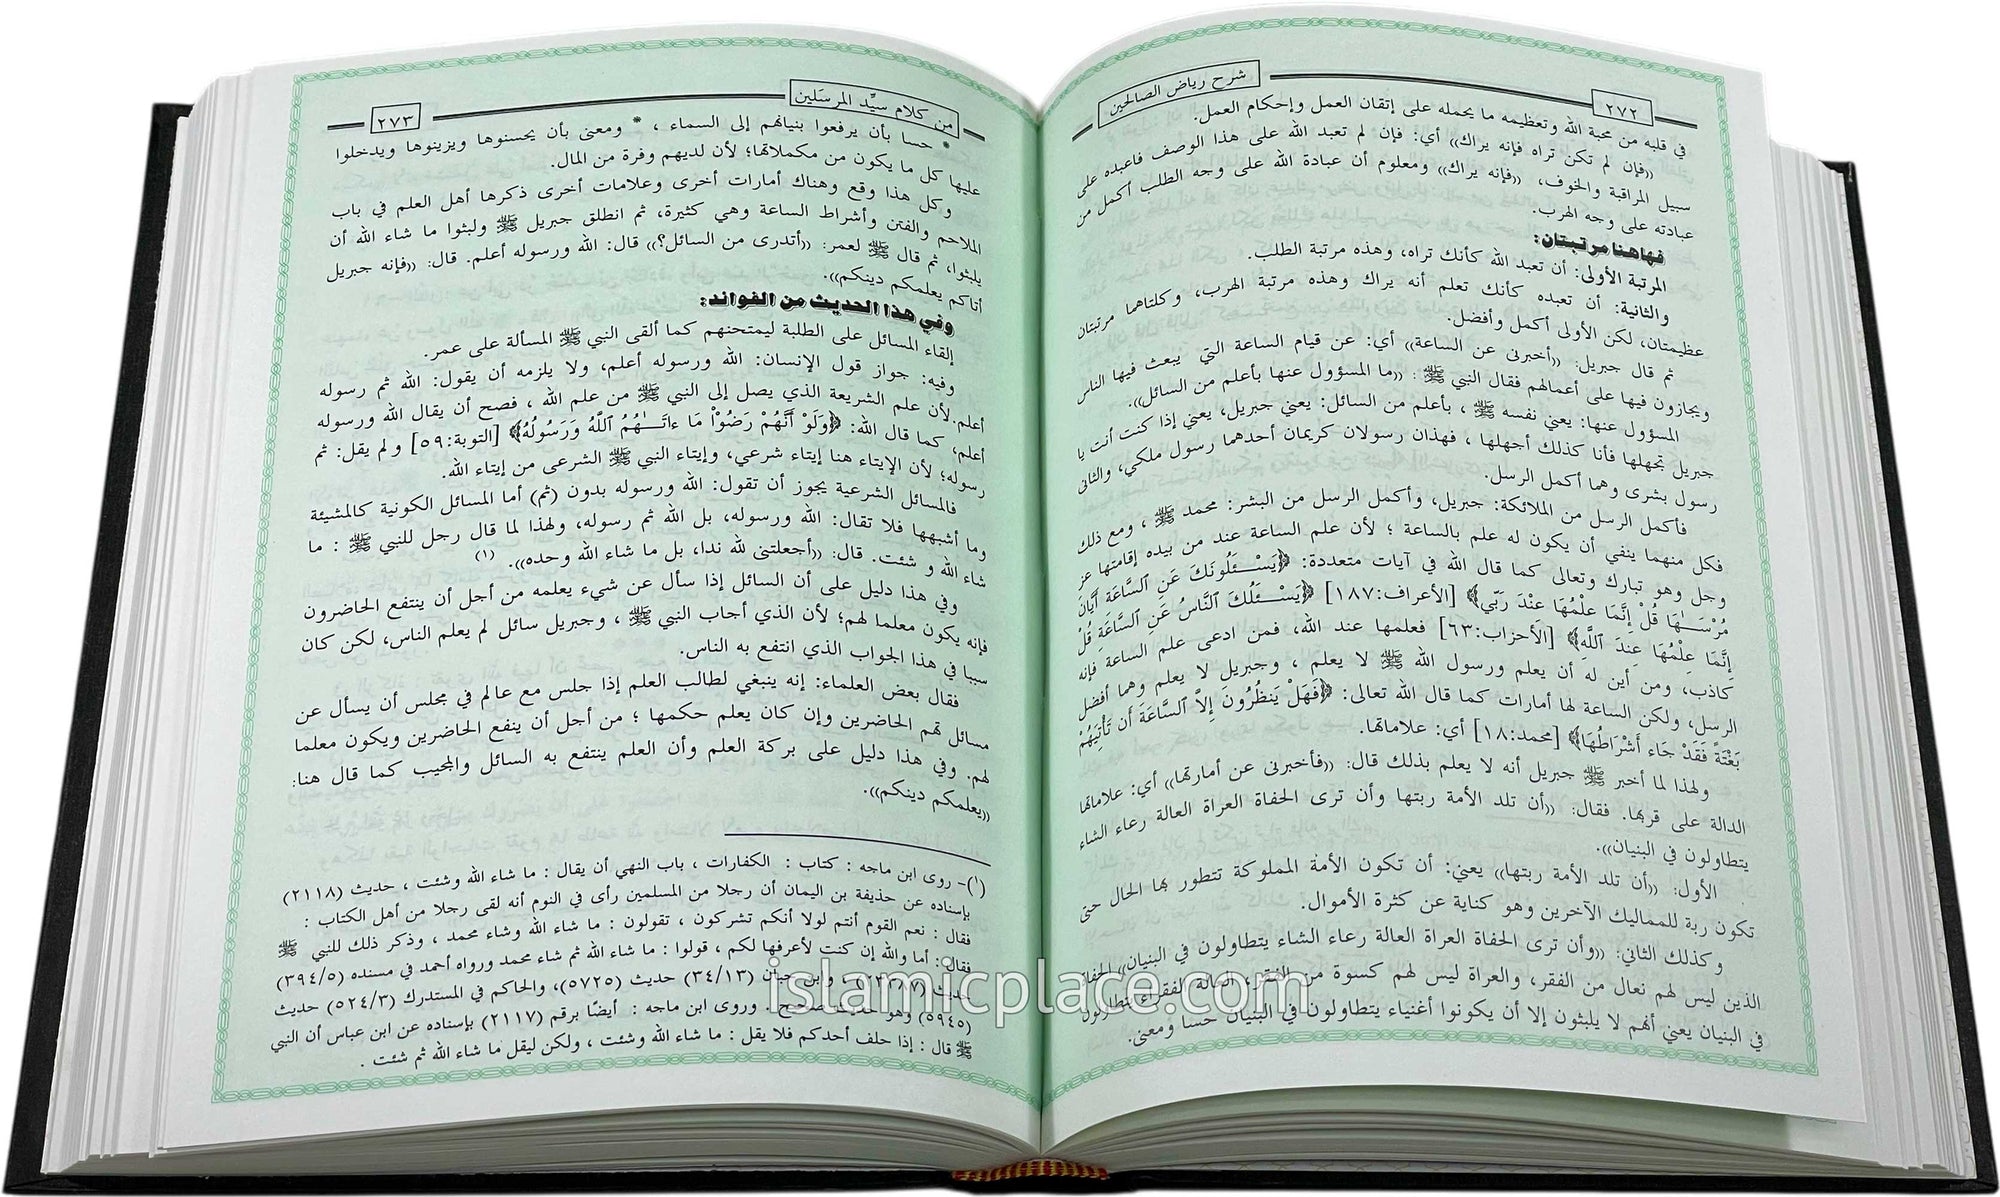 ٢٧٢
شرح رياض الصالحين
في قلبه من محبة الله وتعظيمه ما يحمله على إتقان العمل وإحكام العمل.
((فإن لم تكن تراه فإنه يراك)) أي: فإن لم تعبد الله على هذا الوصف فاعبده على
سبيل المراقبة والخوف، ((فإنه يراك)) ومعلوم أن عبادة الله على وجه الطلب أكمل من
عبادته على وجه الهرب.
فهاهنا مرتبتان:
المرتبة الأولى: أن تعبد الله كأنك تراه، وهذه مرتبة الطلب.
والثانية: أن تعبده كأنك تعلم أنه يراك وهذه مرتبة الهرب، وكلتاهما مرتبتان
عظيمتان، لكن الأولى أكمل وأفضل.
ثم قال جبريل: ((أخبرني عن الساعة)) أي: عن قيام الساعة التي يبعث فيها الناس
ويجازون فيها على أعمالهم فقال النبي ﷺ : ((ما المسؤول عنها بأعلم من السائل)).
المسؤول عنها: يعني نفسه ﷺ ، بأعلم من السائل: يعني جبريل، يعني إذا كنت أنت يا
جبريل تجهلها فأنا كذلك أجهلها ، فهذان رسولان كريمان أحدهما رسول ملكي، والثاني
رسول بشرى وهما أكمل الرسل.
فأكمل الرسل من الملائكة: جبريل، وأكمل الرسل من البشر: محمد ﷺ ، ومع ذلك
فكل منهما ينفي أن يكون له علم بالساعة ؛ لأن علم الساعة عند من بيده إقامتها عز
وجل وهو تبارك وتعالى كما قال الله في آيات متعددة: ﴿يَسْـَٔلُونَكَ عَنِ ٱلسَّاعَةِ أَيَّانَ
مُرْسَـٰهَا قُلْ إِنَّمَا عِلْمُهَا عِندَ رَبِّي﴾ [الأعراف:١٨٧] ﴿يَسْـَٔلُكَ ٱلنَّاسُ عَنِ ٱلسَّاعَةِ قُلْ
إِنَّمَا عِلْمُهَا عِندَ ٱللَّهِ﴾ [الأحزاب:٦٣] فعلمها عند الله، فمن ادعى علم الساعة فإنه
كاذب، ومن أين له أن يعلم ورسول الله ﷺ لا يعلم ، وجبريل لا يعلم وهما أفضل
الرسل، ولكن الساعة لها أمارات كما قال الله تعالى: ﴿فَهَلْ يَنظُرُونَ إِلَّا ٱلسَّاعَةَ أَن تَأْتِيَهُمْ
بَغْتَةً فَقَدْ جَاء أَشْرَاطُهَا﴾ [محمد:١٨] أي: علاماتها.
ولهذا لما أخبر ﷺ جبريل أنه لا يعلم بذلك قال: ((فأخبرني عن أمارتها)) أي: علاماتها
الدالة على قربها. فقال: ((أن تلد الأمة ربتها وأن ترى الحفاة العراة العالة رعاء الشاء
يتطاولون في البنيان)).
الأول: ((أن تلد الأمة ربتها)) يعني: أن تكون الأمة المملوكة تتطور بها الحال حتى
تكون ربة للمماليك الآخرين وهو كناية عن كثرة الأموال.
وكذلك الثاني: ((وأن ترى الحفاة العراة العالة رعاء الشاء يتطاولون في البنيان)) الحفاة
الذين ليس لهم نعال من الفقر، والعراة ليس لهم كسوة من الفقر، العالة الفقراء يتطاولون
في البنيان يعني أنهم لا يلبثون إلا أن يكونوا أغنياء يتطاولون في البنيان حسا ومعنى.
من كلام سيِّد المرسَلين
٢٧٣
* حسا بأن يرفعوا بنيانهم إلى السماء ، * ومعنى بأن يحسنوها ويزينوها ويدخلوا
عليها كل ما يكون من مكملاتها؛ لأن لديهم وفرة من المال.
وكل هذا وقع وهناك أمارات أخرى وعلامات أخرى ذكرها أهل العلم في باب
الملاحم والفتن وأشراط الساعة وهي كثيرة، ثم انطلق جبريل ﷺ ولبثوا ما شاء الله أن
يلبثوا، ثم قال ﷺ لعمر: ((أتدرى من السائل؟)) قال: الله ورسوله أعلم. قال: ((فإنه جبريل
أتاكم يعلمكم دينكم)).
وفي هذا الحديث من الفوائد:
إلقاء المسائل على الطلبة ليمتحنهم كما ألقى النبي ﷺ المسألة على عمر.
وفيه: جواز قول الإنسان: الله ورسوله أعلم، ولا يلزمه أن يقول: الله ثم رسوله
أعلم. لأن علم الشريعة الذي يصل إلى النبي ﷺ من علم الله ، فصح أن يقال الله ورسوله
أعلم، كما قال الله: ﴿وَلَوْ أَنَّهُمْ رَضُوْاْ مَا ءَاتَـٰهُمُ ٱللَّهُ وَرَسُولُهُ﴾ [التوبة:٥٩] ولم يقل: ثم
رسوله؛ لأن الإيتاء هنا إيتاء شرعي، وإيتاء النبي ﷺ الشرعى من إيتاء الله.
فالمسائل الشرعية يجوز أن تقول: الله ورسوله بدون (ثم) أما المسائل الكونية كالمشيئة
وما أشبهها فلا تقال: الله ورسوله، بل الله ثم رسوله، ولهذا لما قال رجل للنبي ﷺ : ما
شاء الله و شئت. قال: ((أجعلتني لله ندا، بل ما شاء الله وحده)). (١)
وفي هذا دليل على أن السائل إذا سأل عن شيء يعلمه من أجل أن ينتفع الحاضرون
فإنه يكون معلما لهم؛ لأن الذي أجاب النبي ﷺ ، وجبريل سائل لم يعلم الناس، لكن كان
سببا في هذا الجواب الذي انتفع به الناس.
فقال بعض العلماء: إنه ينبغي لطالب العلم إذا جلس مع عالم في مجلس أن يسأل عن
مسائل تهم الحاضرين وإن كان يعلم حكمها ؛ من أجل أن ينفع الحاضرين ويكون معلما
لهم. وفي هذا دليل على بركة العلم وأن العلم ينتفع به السائل والمجيب كما قال هنا:
((يعلمكم دينكم)).
(١)- روى ابن ماجه : كتاب : الكفارات ، باب النهي أن يقال : ما شاء الله وشئت ، حديث (٢١١٨)
بإسناده عن حذيفة بن اليمان أن رجلا من المسلمين رأى في النوم أنه لقى رجلا من أهل الكتاب :
فقال : نعم القوم أنتم لولا أنكم تشركون ، تقولون : ما شاء الله وشاء محمد ، وذكر ذلك للنبي ﷺ
فقال : أما والله إن كنت لأعرفها لكم ، قولوا : ما شاء الله ثم شاء محمد ورواه أحمد في مسنده (٣٩٤/٥)
حديث وابن حبان (٣٤/١٣) حديث (٥٧٢٥)، والحاكم في المستدرك (٥٢٤/٣) حديث
(٥٩٤٥) وهو حديث صحيح . وروى ابن ماجه : أيضًا برقم (٢١١٧) بإسناده عن ابن عباس أن النبي
ﷺ قال : إذا حلف أحدكم فلا يقل : ما شاء الله وشئت ، ولكن ليقل ما شاء الله ثم شئت .
islamicplace.com